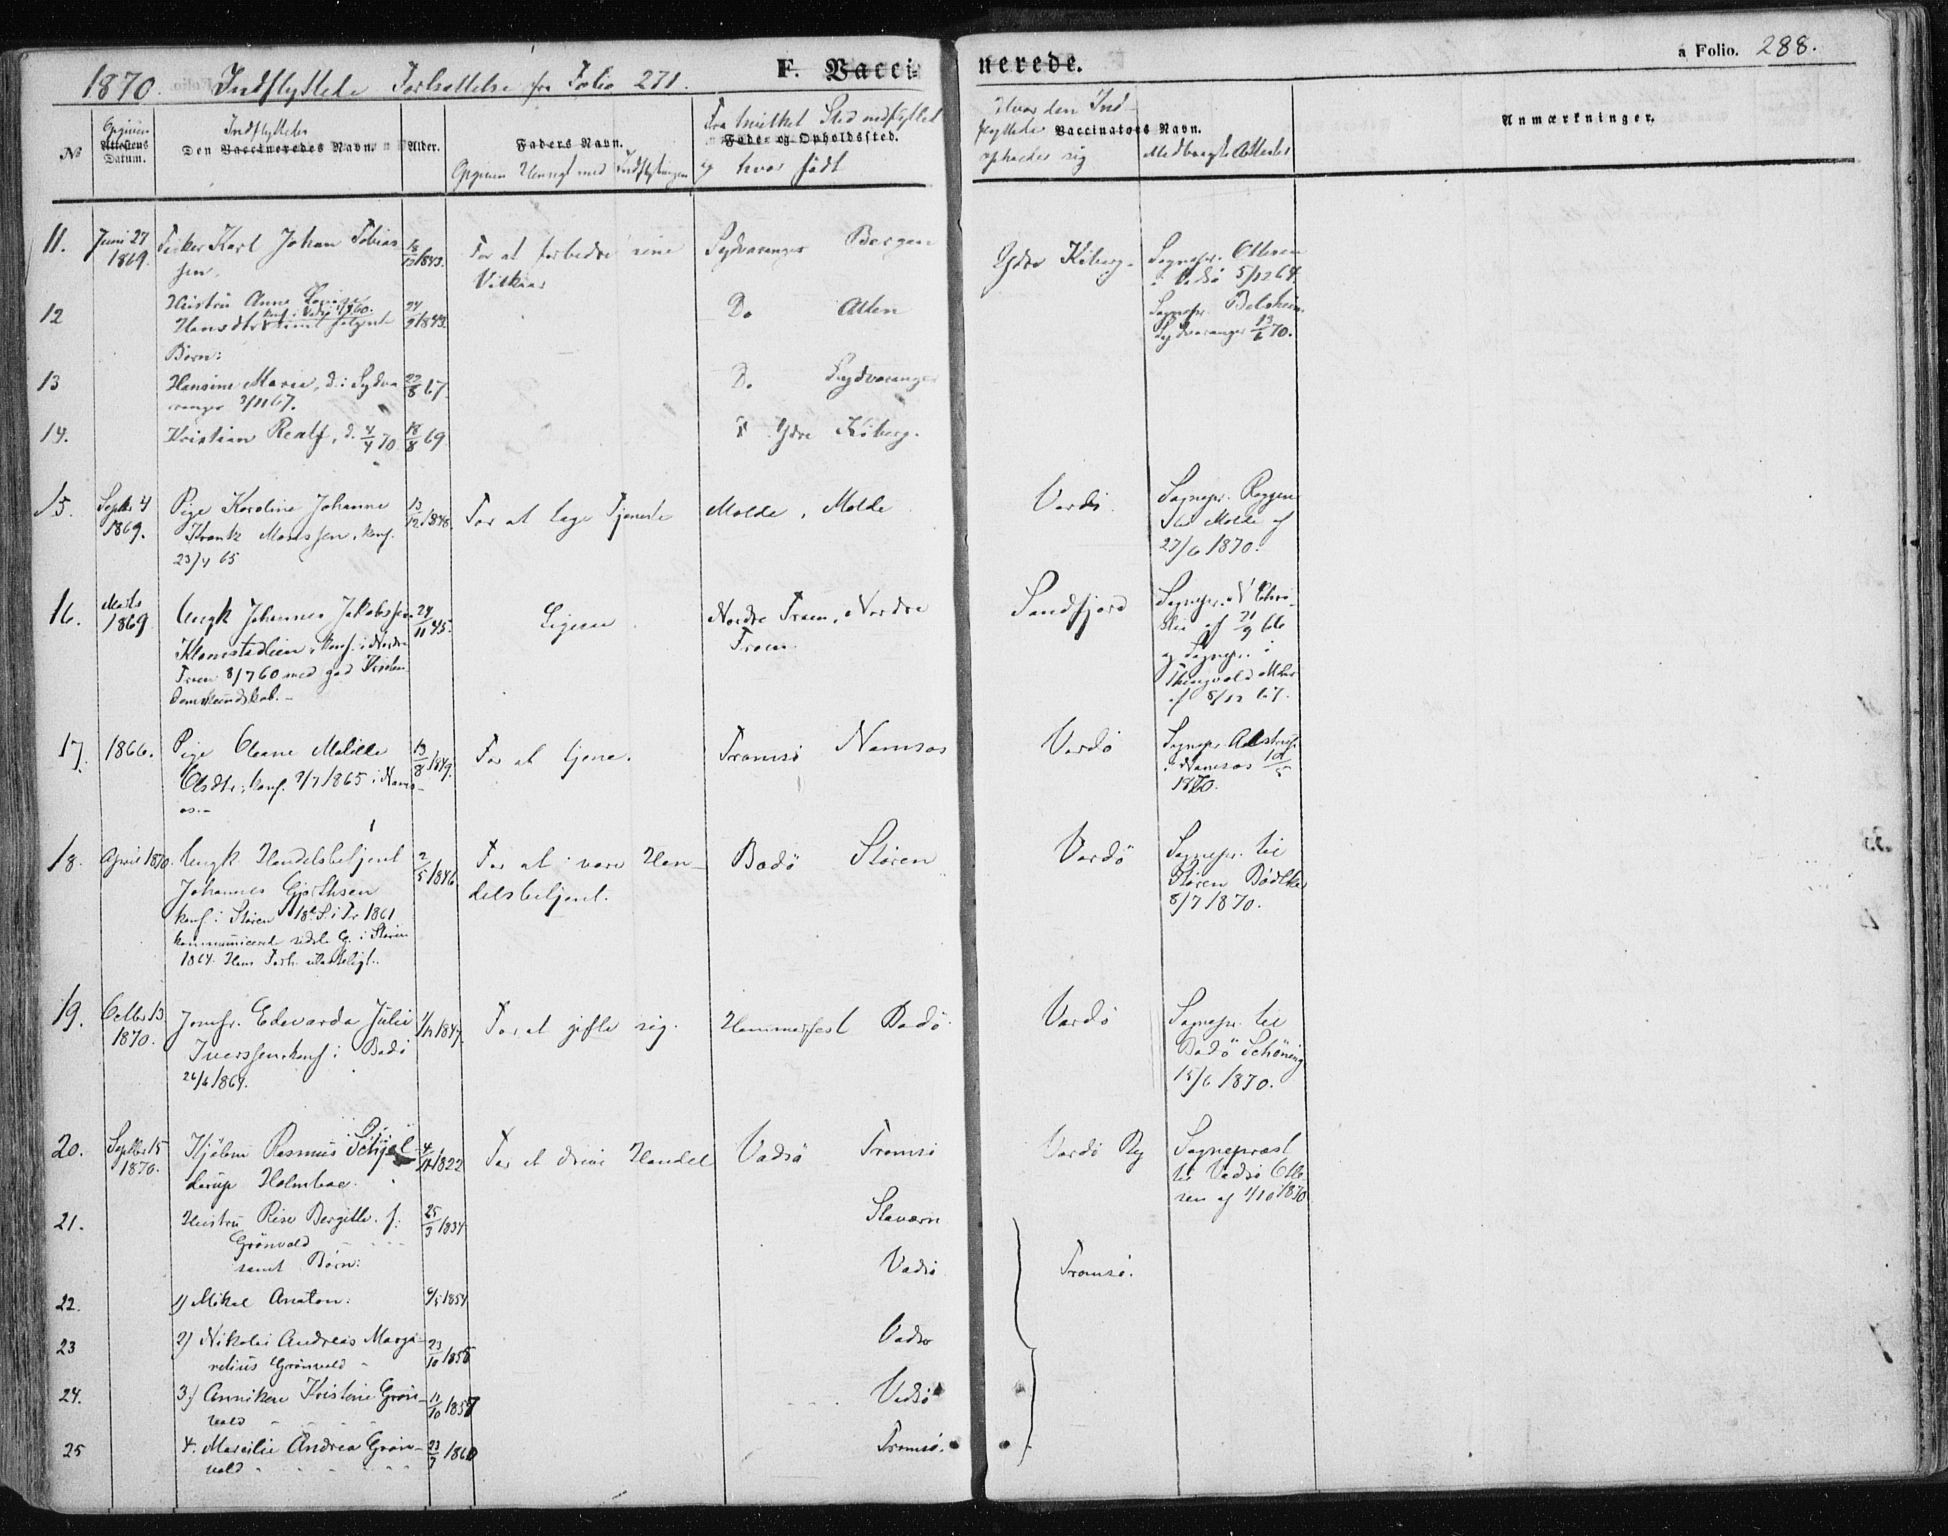 1870. Indflyttede Fortsættelse fra Folio 271.
F. Vaccinerede.
a Folio. 288.
No
Opgiven Attestens Datum.
Indflyttedes
Den Vaccineredes Navn.
Alder.
Faders Navn.
Opgiven Hensigt med Indflytningen
Fra hvilket Sted indflyttet
Føde- og Opholdssted.
og hvor født
Hvor den Ind-
flyttede
opholder sig
Vaccinators Navn.
Medbragte Attester
Anmærkninger.
11. Juni 27 1869. Fisker Karl Johan Tobias
sen. 1843. For at forbedre sine
Vilkaar Sydvaranger Bergen Ydre Kiberg. Sognepr. Ottesen
i Vadsö 5/12 64.
12 Hustru Anne
Hansdtr samt følgende
Børn: 1843. Do Alten Sognepr. Balsheim
Sydvaranger 13/6 70.
13 Hansine Marie, d. i Sydva
ranger 3/11 67. 22/8 67. Do Sydvaranger
14. Kristian Realf, d. 4/4 70 18/8 69 Ydre Kiberg.
15. Septbr 4 1869. Pige Karoline Johanne
Krank Monssen, konf.
23/4 65 13/12 1848. For at tage Tjeneste Molde, Molde Vardö. Sognepr. Roggen
til Molde af
27/6 1870.
16. Marts 1869 Ungk Johannes Jakobssen
Klomstadlien, konf. i Nordre
Froen 8/7 60 med god Kristen
domskundskab. 24/11 45. Ligesaa. Nordre Froen, Nordre
Froen. Sandfjord Sognepr.
og Sognepr. i
Thingvold
af 8/12 67.
17. 1866. Pige Oleane Malille
Olsdtr, konf. 2/7 1865 i Nams-
os. 13/8 1849. For at tjene. Tromsö Namsos Vardö Sognepr.
i Namsos 10/5
1870.
18. April 1870. Ungk Handelsbetjent
Johannes Gjerthsen
konf. i Støren 18de S. i Tr 1861
kommuniceret sidste G. i Støren
1864. Hans Forh. ulasteligt. 2/5 1846. For at være Han-
delsbetjent. Bodö Støren Vardö Sognepr. til
Støren Bödtker
8/7 1870.
19. Octbr 13 1870. Jomfr. Edevarda Julie
Iverssen, konf. i Bodö
26/6 1864. 1847. For at gifte sig. Hammerfest Bodö. Vardö Sognepr. til
Bodö Schöning
15/6 1870.
20. Septbr 15 1870. Kjøbm Rasmus Schjel-
derup Holmboe. 1822 For at drive Handel Vadsö Tromsö Vardö By Sogneprest
til Vadsö Otte-
sen af 4/10 1870.
21. Hustru Rise Bergitte f.
Grönvold
samt Børn: 25/3 1834 Stavern
Vadsö Tromsö.
22. 1) Mikal Anaton: 1854
23 2) Nikolai Andreas Marga-
retius Grönvold 23/10 1855 Vadsö
24. 3) Annikene Kristine Grön-
vold 11/10 1857 Vadsö
25 4. Marcilie Andrea Grøn-
vold 23/7 1860 Tromsö.